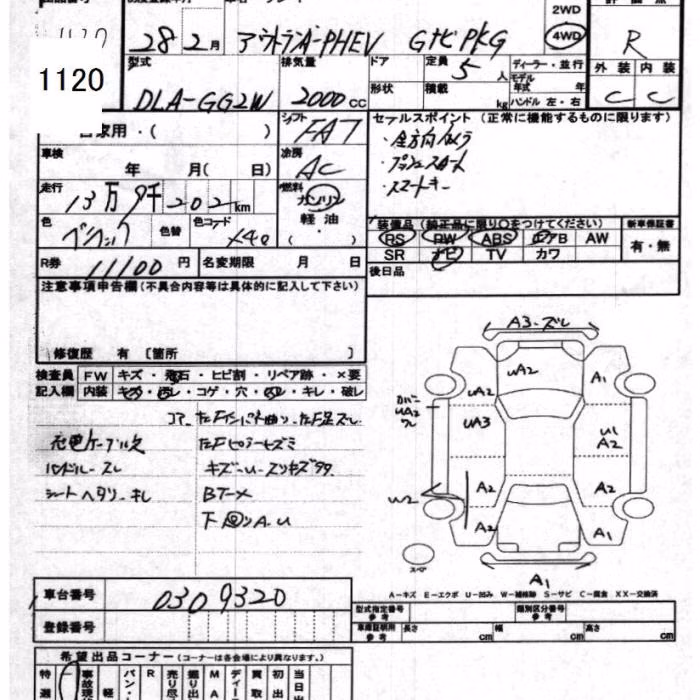 2WD
28 2月 アウトランダーPHEV GナビPKG 4WD R
1120
型式 排気量 ドア 定員 5人 ディーラー・並行 外装 内装
DLA-GG2W 2000cc 形状 積載 kg モデル年式 年式 ハンドル 左・右 C C
自家用・( ) シフト FA7 セールスポイント (正常に機能するものに限ります)
・全方向カメラ
車検 年 月( 日) 冷房 AC ・プッシュスタート
・スマートキー
走行 13万9千202km 燃料 ガソリン 軽油 ( ・ )
色 ブラック 色替 色コード X40
装備品 (純正品に限り○をつけてください) 新車保証書
PS PW ABS エアB AW 有・無
SR ナビ TV カワ
R券 11100円 名変期限 月 日 後日品
注意事項申告欄(不具合内容等は具体的に記入して下さい)
修復歴 有 〔箇所 〕
検査員 FW キズ・飛石・ヒビ割・リペア跡・×要
記入欄 内装 キズ・汚レ・コゲ・穴・凹・キレ・破レ
充電ケーブル欠
ハンドル-スレ
シートヘタリ-キレ
A3-ズレ
UA2
UA2 A1
UA3 A2
A2 A2
W2
A2 A1
スペア
A1
A-キズ E-エクボ U-凹み W-補修跡 S-サビ C-腐食 XX-交換済
車台番号 0309320
登録番号
型式指定番号 参考 類別区分番号 参考
車庫証明用 参考 長さ cm 幅 cm 高さ cm
希望出品コーナー (コーナーは各会場により異なります。)